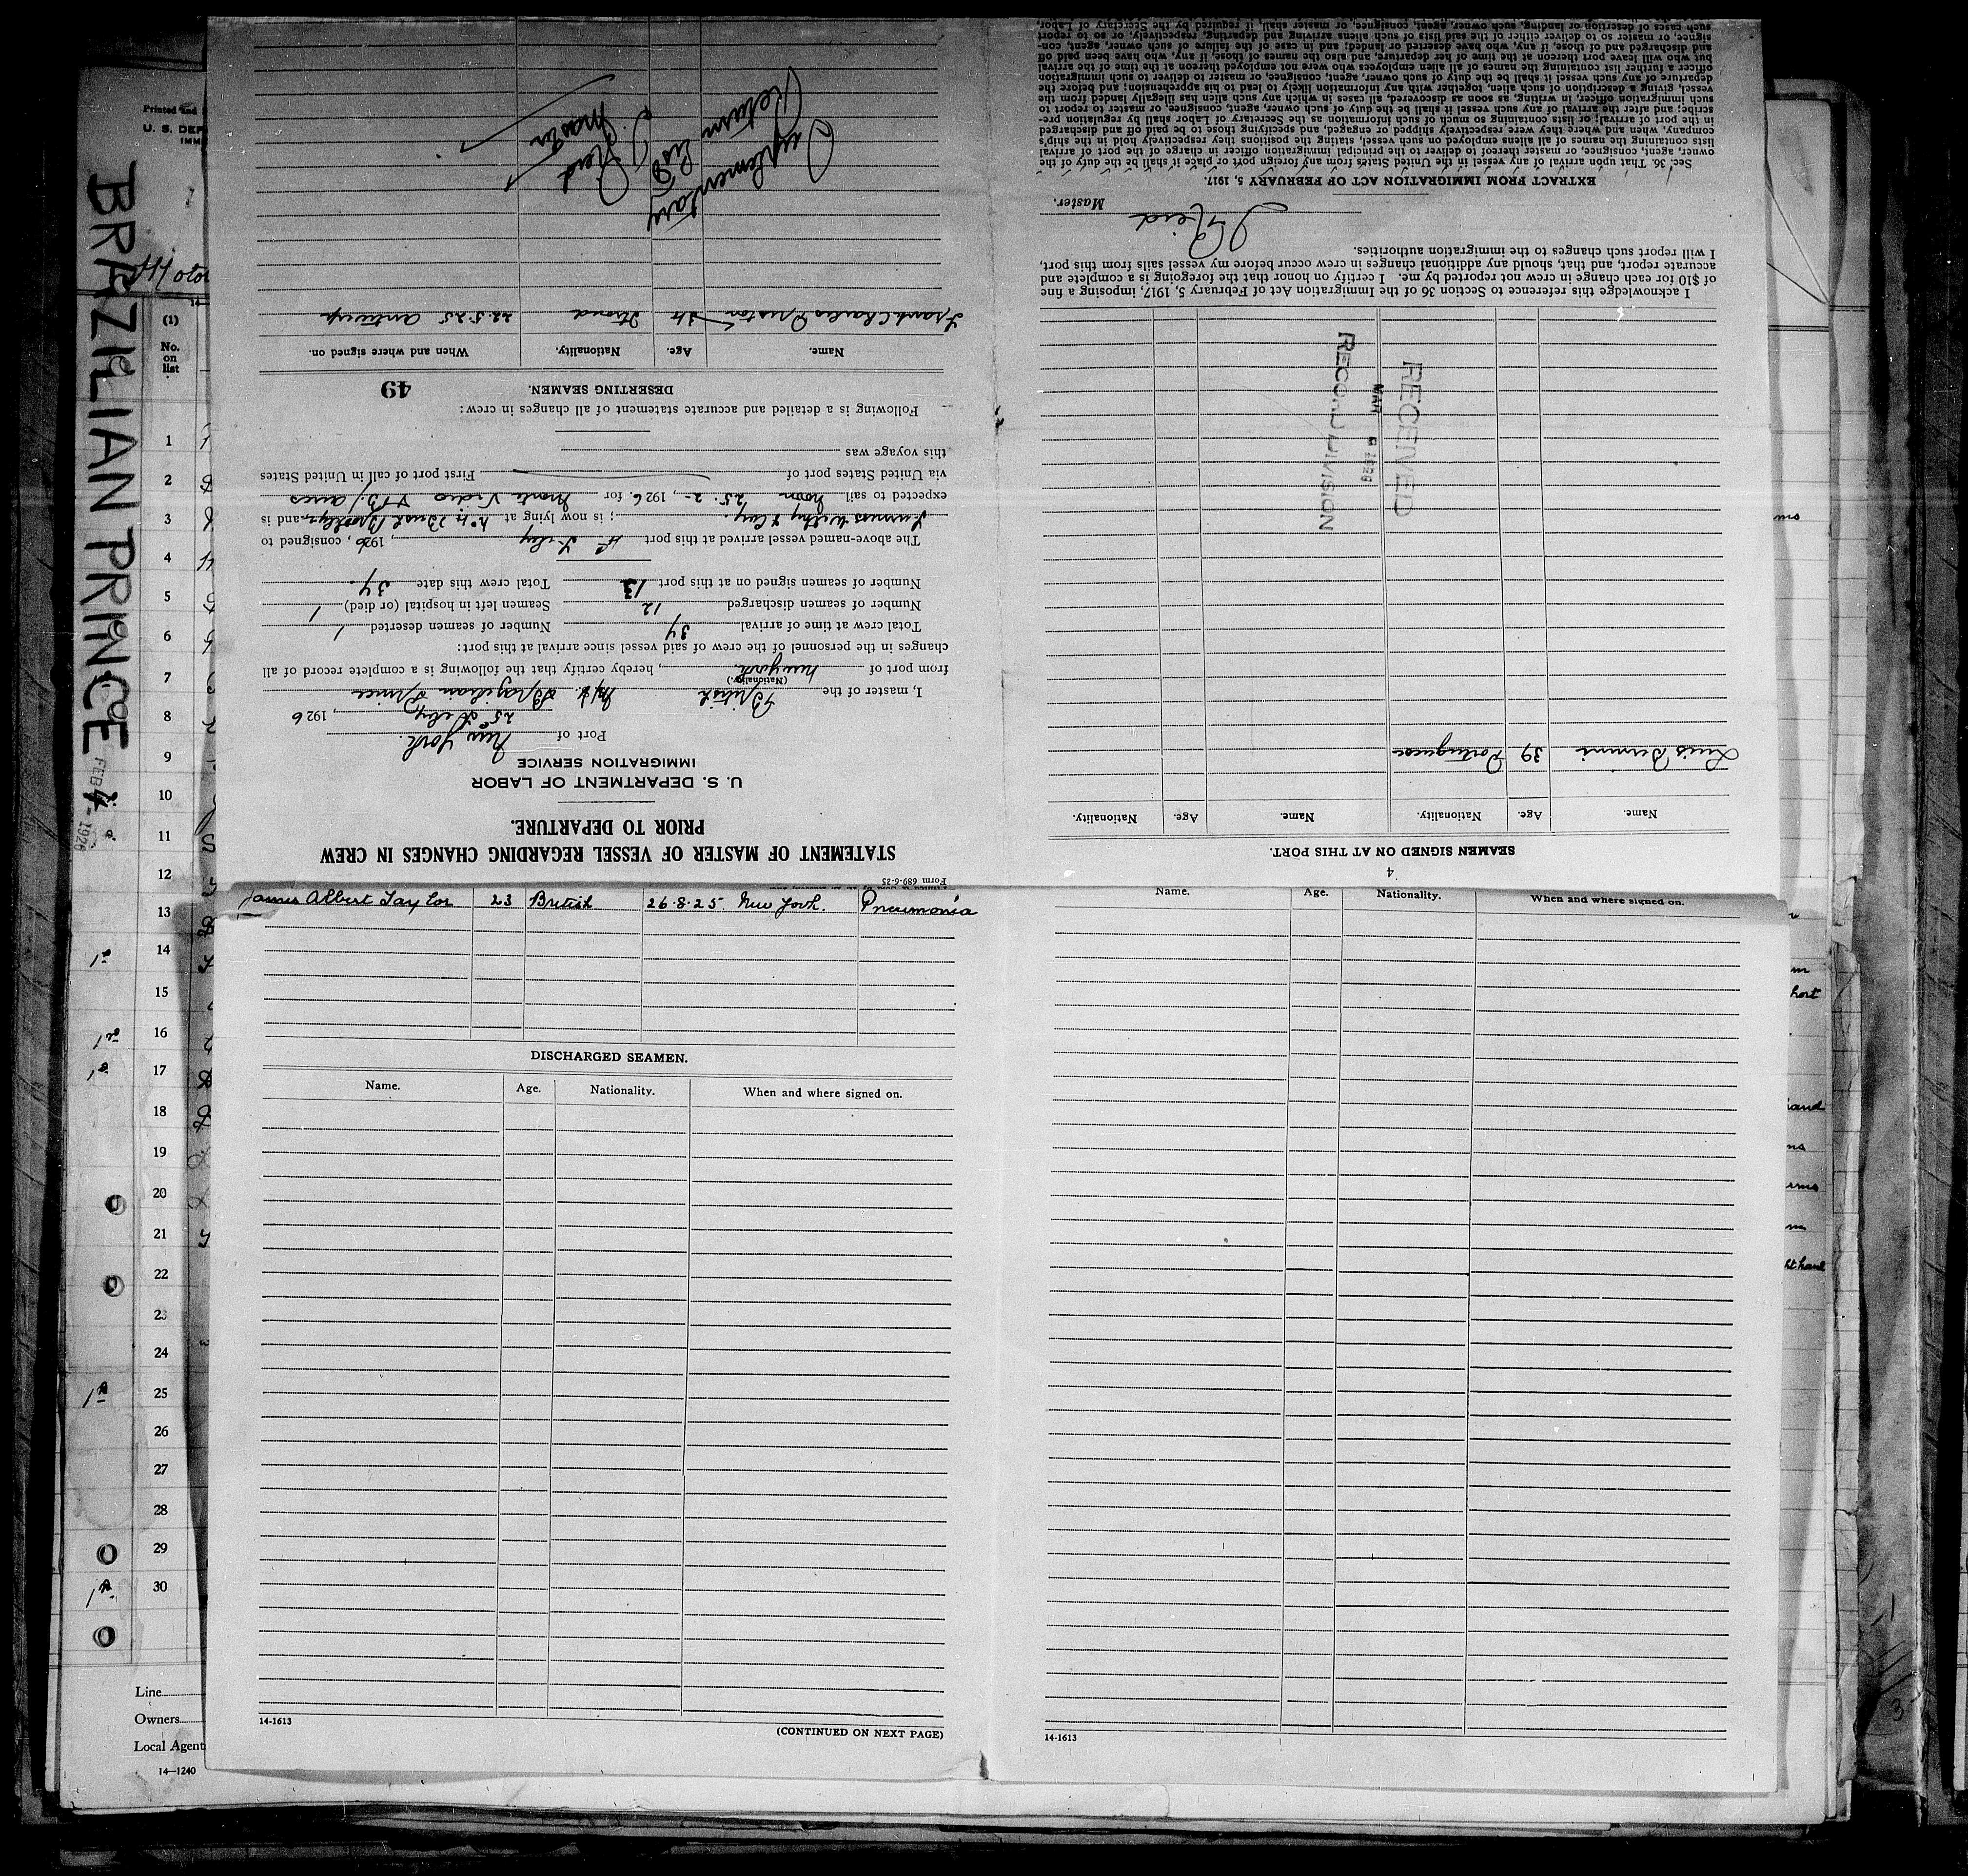 BRAZILIAN PRINCE FEB 4 - 1926
Printed and
U. S. DEP
IMM
Motor
14
(1)
No.
on
list
1
2
3
4
5
6
7
8
9
10
11
12
13
14
15
16
17
18
19
20
21
22
23
24
25
26
27
28
29
30
Line
Owners
Local Agent
14—1240
Form 689-6-25
STATEMENT OF MASTER OF VESSEL REGARDING CHANGES IN CREW
PRIOR TO DEPARTURE.
U. S. DEPARTMENT OF LABOR
IMMIGRATION SERVICE
Port of New York.
25th Feby, 1926
I, master of the British M/S. Brazilian Prince
(Nationality.)
from port of New York, hereby certify that the following is a complete record of all
changes in the personnel of the crew of said vessel since arrival at this port:
Total crew at time of arrival 34 Number of seamen deserted 1
Number of seamen discharged 12 Seamen left in hospital (or died) 1
Number of seamen signed on at this port 13 Total crew this date 34.
The above-named vessel arrived at this port 4th Feby, 1926, consigned to
Furness Withy & Coy.; is now lying at No 4. Bush Brooklyn and is
expected to sail noon 25.2-, 1926 for Monte Video & B/ aires
via United States port of First port of call in United States
this voyage was
Following is a detailed and accurate statement of all changes in crew:
DESERTING SEAMEN. 49
Name. Age. Nationality. When and where signed on.
Frank Charles 34 22.5.25 Antwerp
Supplementary
Return List
J. Reid
Master
4
SEAMEN SIGNED ON AT THIS PORT.
Name. Age. Nationality. Name. Age. Nationality.
Luis 39 Portuguese
RECEIVED
MAR 6 1926
RECORD DIVISION
I acknowledge this reference to Section 36 of the Immigration Act of February 5, 1917, imposing a fine
of $10 for each change in crew not reported by me. I certify on honor that the foregoing is a complete and
accurate report, and that, should any additional changes in crew occur before my vessel sails from this port,
I will report such changes to the immigration authorities.
J Reid Master.
EXTRACT FROM IMMIGRATION ACT OF FEBRUARY 5, 1917.
Sec. 36. That upon arrival of any vessel in the United States from any foreign port or place it shall be the duty of the
owner, agent, consignee, or master thereof to deliver to the principal immigration officer in charge of the port of arrival
lists containing the names of all aliens employed on such vessel, stating the positions they respectively hold in the ship's
company, when and where they were respectively shipped or engaged, and specifying those to be paid off and discharged
in the port of arrival; or lists containing so much of such information as the Secretary of Labor shall by regulation pre-
scribe; and after the arrival of any such vessel it shall be the duty of such owner, agent, consignee, or master to report to
such immigration officer, in writing, as soon as discovered, all cases in which any such alien has illegally landed from the
vessel, giving a description of such alien, together with any information likely to lead to his apprehension; and before the
departure of any such vessel it shall be the duty of such owner, agent, consignee, or master to deliver to such immigration
officer a further list containing the names of all alien employees who were not employed thereon at the time of the arrival
but who will leave port thereon at the time of her departure, and also the names of those, if any, who have been paid off
and discharged and of those, if any, who have deserted or landed; and in case of the failure of such owner, agent, con-
signee, or master so to deliver either of the said lists of such aliens arriving and departing, respectively, or so to report
such cases of desertion or landing, such owner, agent, consignee, or master shall, if required by the Secretary of Labor,
James Albert Taylor 23 British 26.8.25. New York. Pneumonia
DISCHARGED SEAMEN.
Name. Age. Nationality. When and where signed on.
14-1613
(CONTINUED ON NEXT PAGE)
Name. Age. Nationality. When and where signed on.
14-1613